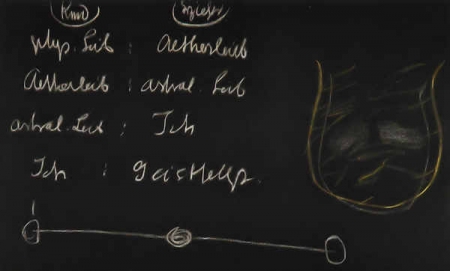 Kind Erzieher
phys. Leib : Aetherleib
Aetherleib : astral. Leib
astral. Leib : Ich
Ich : Geistselbst